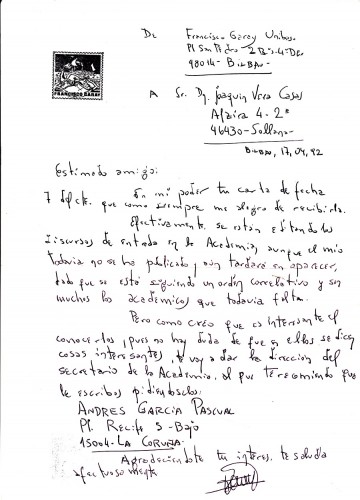 FRANCISCO GARAY
De Francisco Garay Unibaso
Pl San Pedro 2 Bis-4-Dc
48014-BILBAO-
A Sr. D. Joaquin Vera Casas
Alzira 4-2ª
46430-Sollana-
BILBAO, 17,04,92
Estimado amigo:
En mi poder tu carta de fecha
7 del cte. que como siempre me alegro de recibirla.
Efectivamente se están editando los
Discursos de entrada en la Academia, aunque el mio
todavia no se ha publicado, y aún tardará en aparecer,
dado que se está siguiendo un orden correlativo y son
muchos los académicos que todavia falta.
Pero como creo que es interesante el
conocerlos, pues no hay duda de que en ellos se dicen
cosas interesantes, te voy a dar la dirección del
secretario de la Academia, al que te recomiendo que
le escribas pidiendoselos:
ANDRES GARCIA PASCUAL
Pl. Recife 5-Bajo
15004-LA CORUÑA-
Agradeciendote tu interes, te saluda
afectuosamente